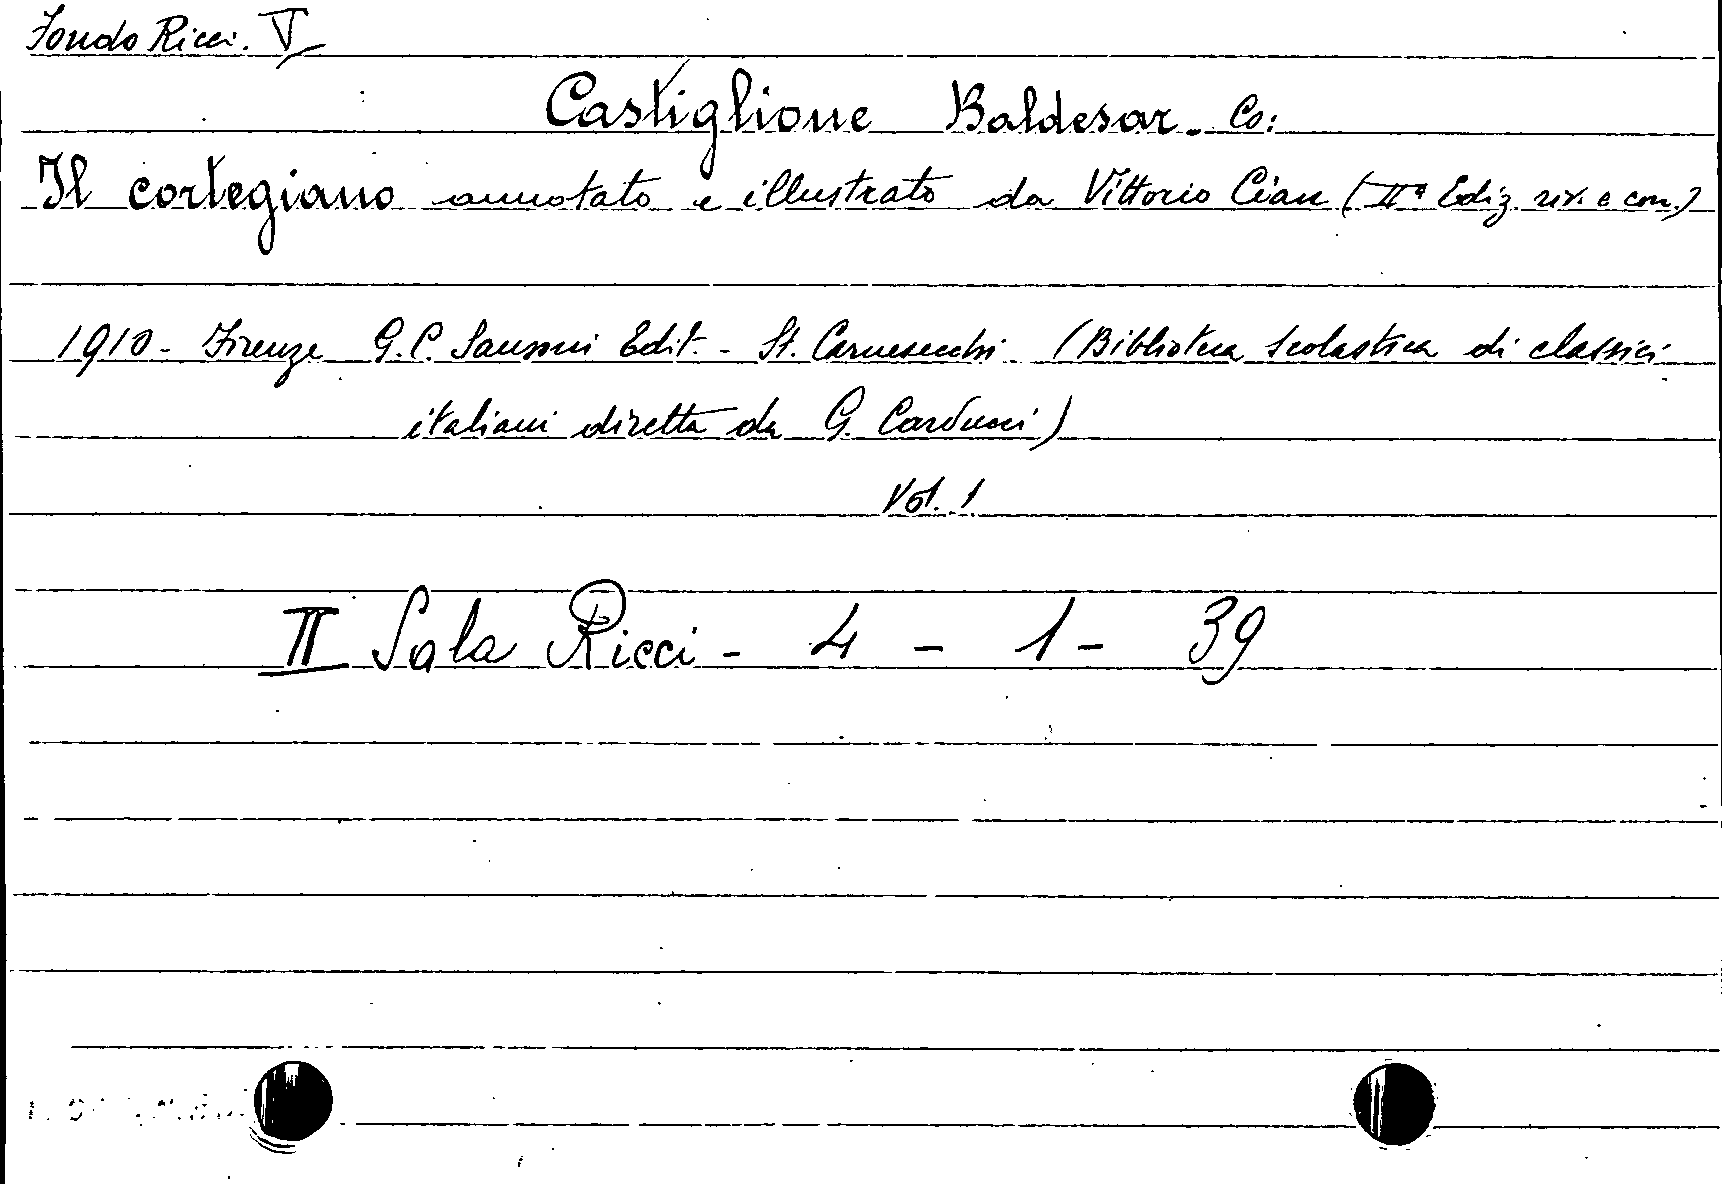 Fondo Ricci. V
Castiglione Baldesar. Co:
Il cortegiano annotato e illustrato da Vittorio Cian (IIª Ediz. riv. e corr.)
1910 - Firenze G.C. Sansoni Edit. - St. Carnesecchi (Biblioteca scolastica di classici
italiani diretta da G. Carducci)
Vol. 1
II Sala Ricci - 4 - 1 - 39